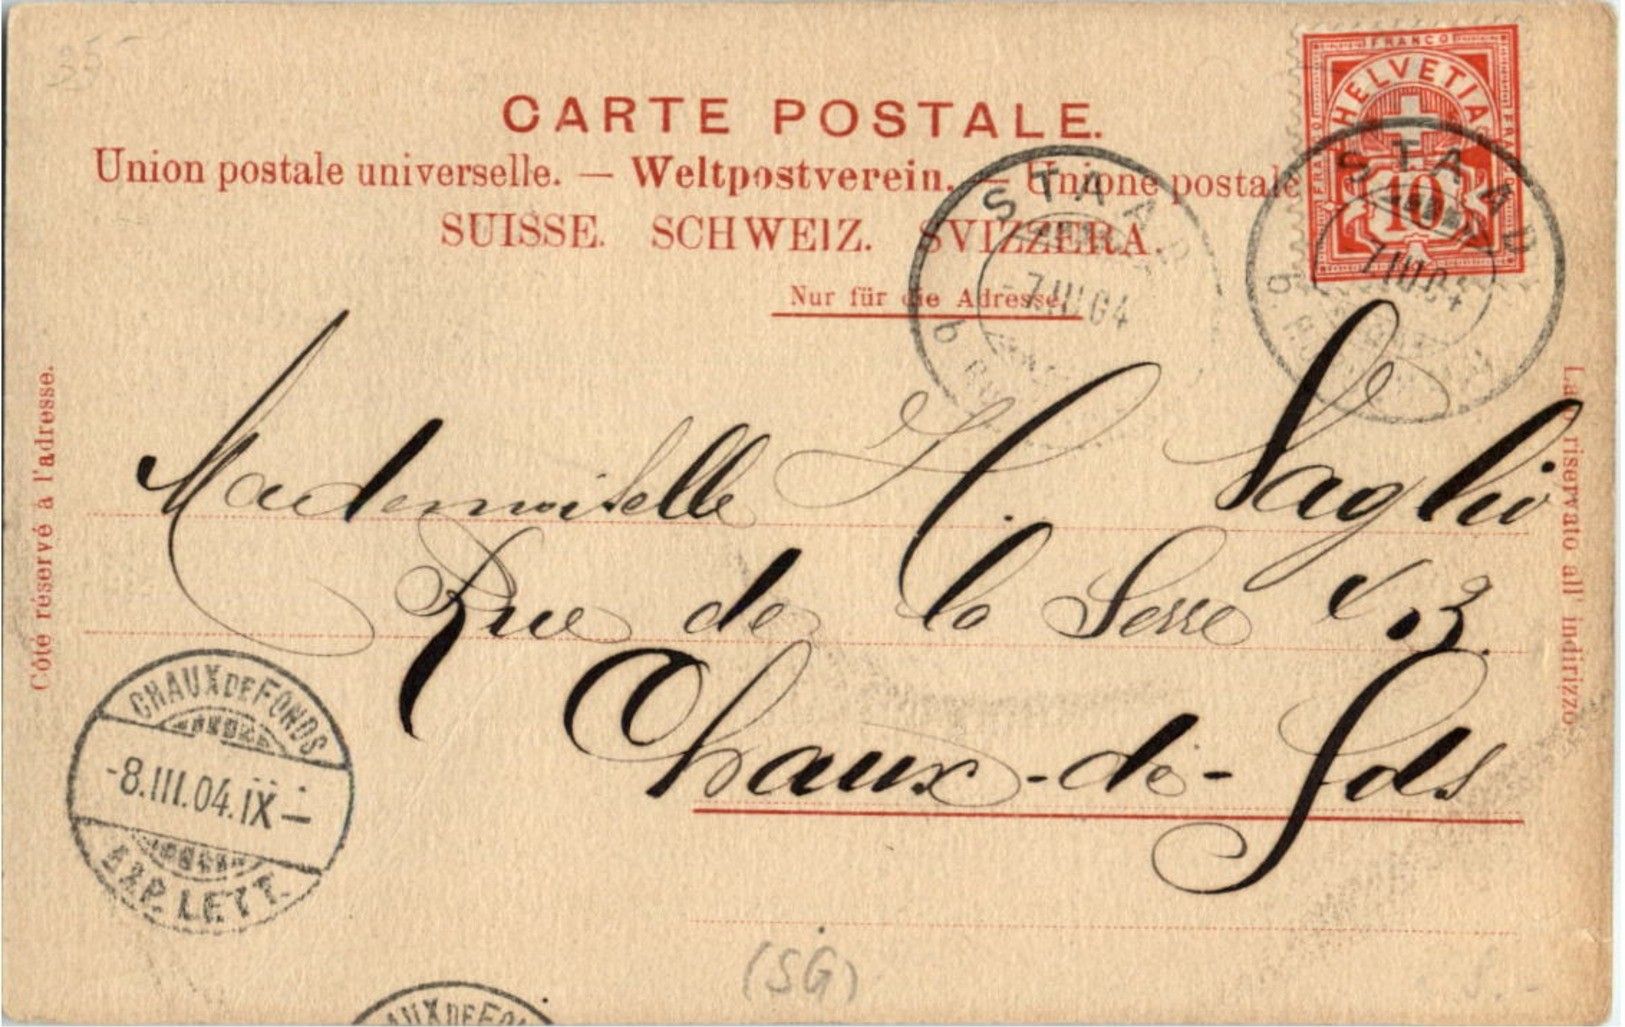 35-
CARTE POSTALE.
Union postale universelle. — Weltpostverein. — Unione postale
SUISSE. SCHWEIZ. SVIZZERA.
Nur für die Adresse.
FRANCO
HELVETIA
10
STAAD
-7.III.04
STAAD
7.III.04
Côté réservé à l'adresse.
riservato all' indirizzo
Mademoiselle H. Saglio
Rue de la Serre
Chaux-de-Fds
CHAUX DE FONDS
-8.III.04.IX-
EXP. LETT.
(SG)
AUX DE FO